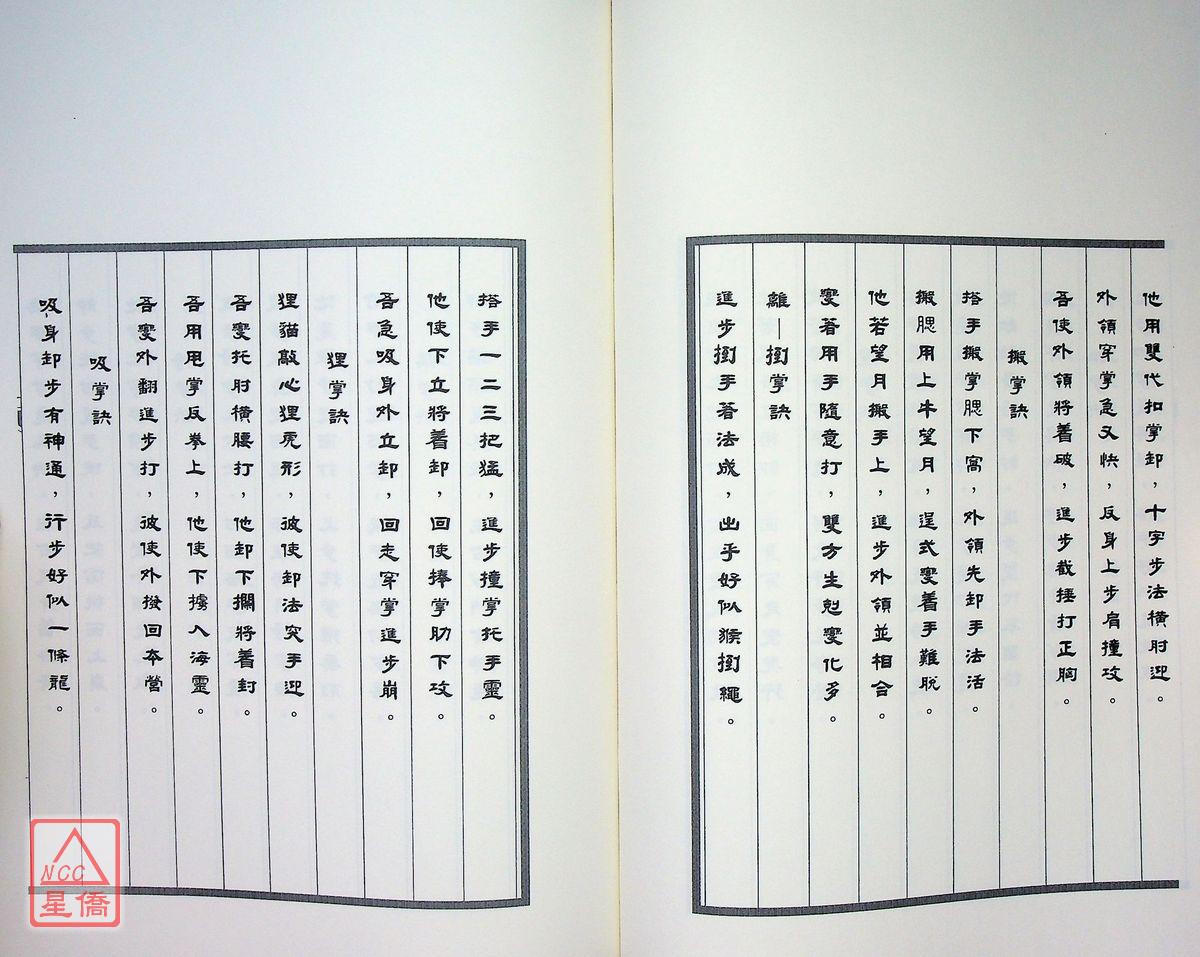 他用雙代扣掌卸，十字步法橫肘迎。
外領穿掌急又快，反身上步肩撞攻。
吾使外領將着破，進步截捶打正胸。
搬掌訣
搭手搬掌腮下窩，外領先卸手法活。
搬腮用上牛望月，逞式變着手難脫。
他若望月搬手上，進步外領並相合。
變着用手隨意打，雙方生剋變化多。
離—掏掌訣
進步掏手著法成，出手好似猴掏繩。
搭手一二三把猛，進步撞掌托手靈。
他使下立將着卸，回使捧掌肋下攻。
吾急吸身外立卸，回走穿掌進步崩。
狸掌訣
狸貓敲心狸虎形，彼使卸法突手迎。
吾變托肘橫腰打，他卸下攔將着封。
吾用甩掌反拳上，他使下擄入海靈。
吾變外翻進步打，彼使外撥回本營。
吸掌訣
吸身卸步有神通，行步好似一條龍。
NCC
星僑